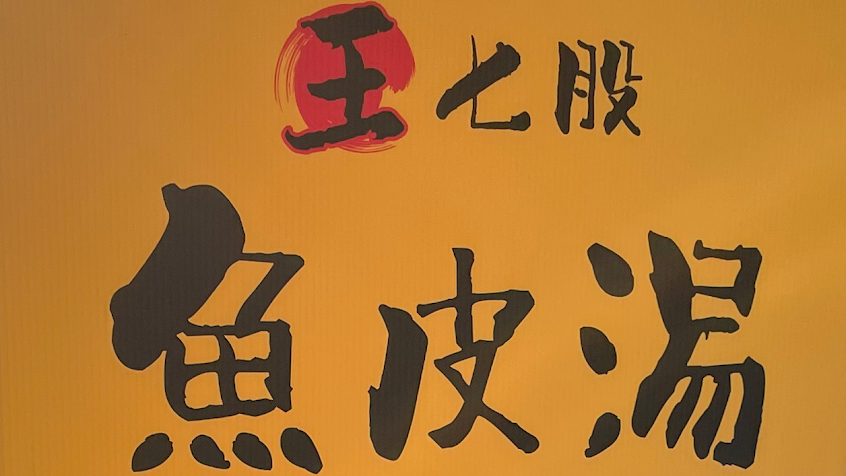 王七股
魚皮湯